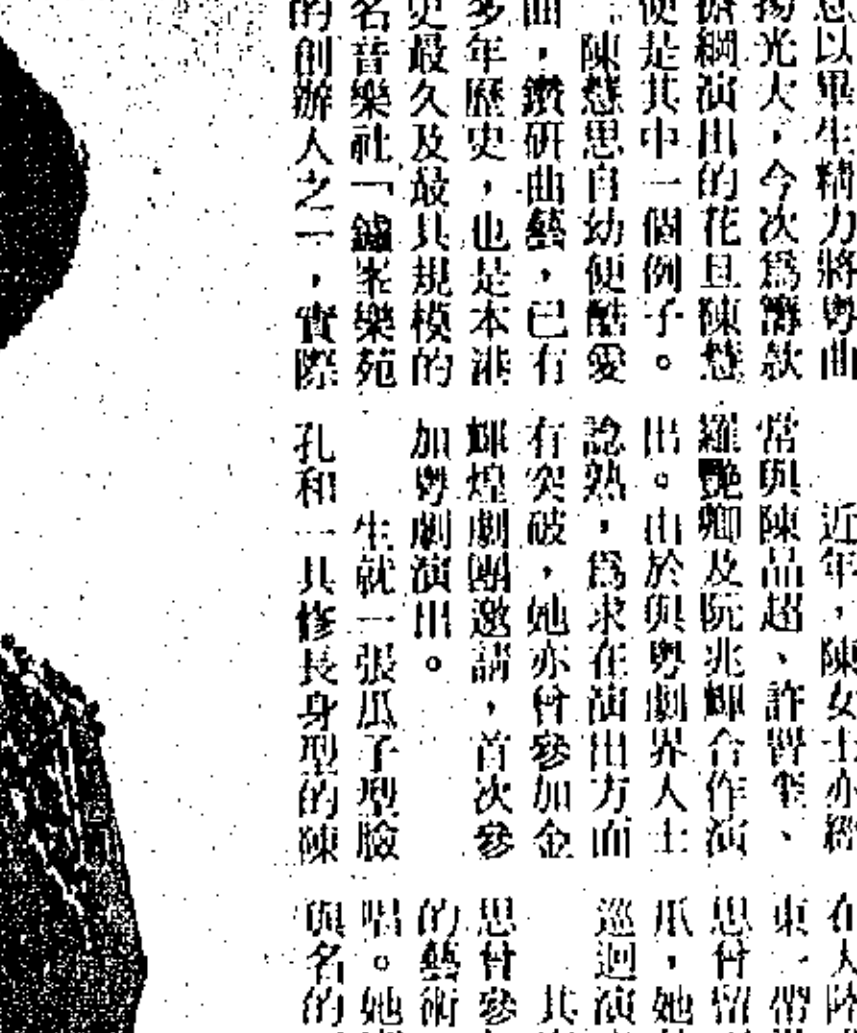 意以畢生精力將粵曲
揚光大，今次爲籌款
擔綱演出的花旦陳慧
便是其中一個例子。
陳慧思自幼便酷愛
曲，鑽研曲藝，已有
多年歷史，也是本港
史最久及最具規模的
名音樂社「鑪峯樂苑
的創辦人之一，實際
近年，陳女士亦經
常與陳品超、許習聖、
羅艷卿及阮兆輝合作演
出。由於與粵劇界人士
諗熟，爲求在演出方面
有突破，她亦曾參加金
輝煌劇團邀請，首次參
加粵劇演出。
生就一張瓜子型臉
孔和一具修長身型的陳
在大陸
東一帶
思曾留
爪，她
巡迴演
其
思曾參
的藝術
唱。她
與名的